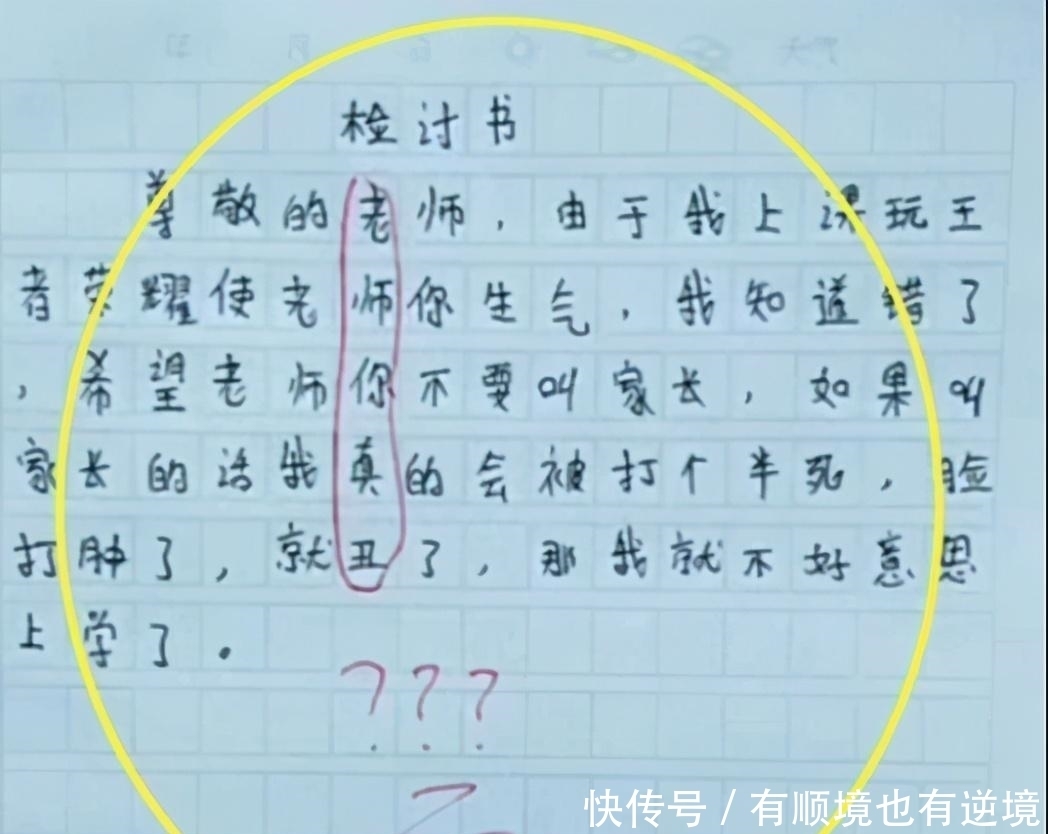 检讨书
尊敬的老师，由于我上课玩王
者荣耀使老师你生气，我知道错了
，希望老师你不要叫家长，如果叫
家长的话我真的会被打个半死，脸
打肿了，就丑了，那我就不好意思
上学了。
???
?
快传号 / 有顺境也有逆境